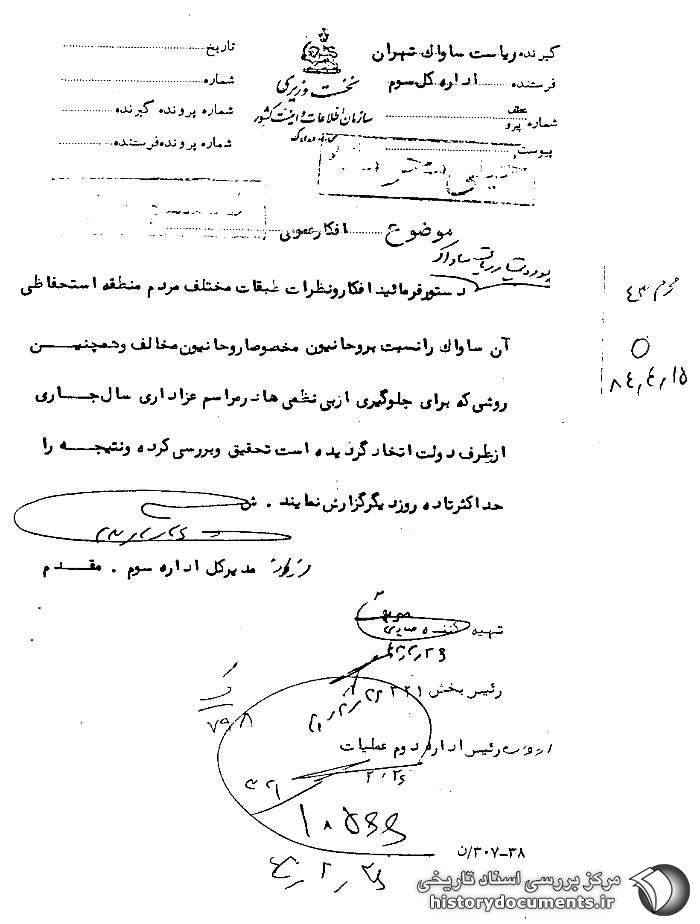 گیرنده ریاست ساواک تهران
فرستنده اداره کل سوم
شماره پیرو عطف
پیوست
نخست وزیری
سازمان اطلاعات و امنیت کشور
تاریخ
شماره
شماره پرونده گیرنده
شماره پرونده فرستنده
موضوع افکار عمومی
دستور فرمائید افکار و نظرات طبقات مختلف مردم منطقه استحفاظی
آن ساواک را نسبت بروحانیون مخصوصا روحانیون مخالف و همچنین
روشی که برای جلوگیری از بی نظمی ها در مراسم عزاداری سال جاری
از طرف دولت اتخاد گردیده است تحقیق و بررسی کرده و نتیجه را
حداکثر تا ده روز دیگر گزارش نمایند . ش
مدیر کل اداره سوم . مقدم
محرم ٤٣
٨٤,٤,١٥
تهیه کننده
رئیس بخش ٣٢١
رئیس اداره دوم عملیات
٧٩٨
٣٨-٣٠٧/ن
مرکز بررسی اسناد تاریخی
historydocuments.ir